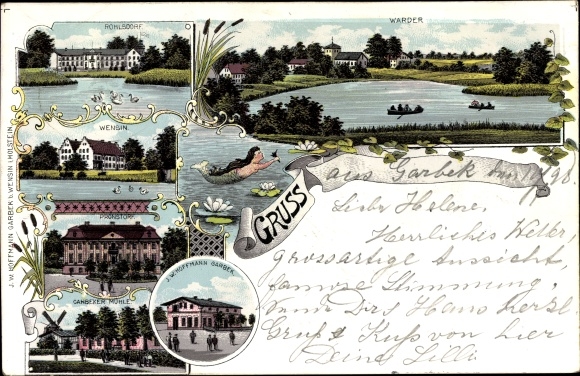 ROHLSDORF.
WARDER
WENSIN.
PRONSTORF.
GARBEKER MÜHLE.
J.W. HOFFMANN GARBEK.
J. W. HOFFMANN GARBEK b. WENSIN i. HOLSTEIN.
GRUSS
aus Garbek den 98
Liebe Helene,
Herrliches Wetter,
grossartige Aussicht,
famose Stimmung.
Dir's Hans herzl.
Gruß & Kuß von hier
Deine Lilli